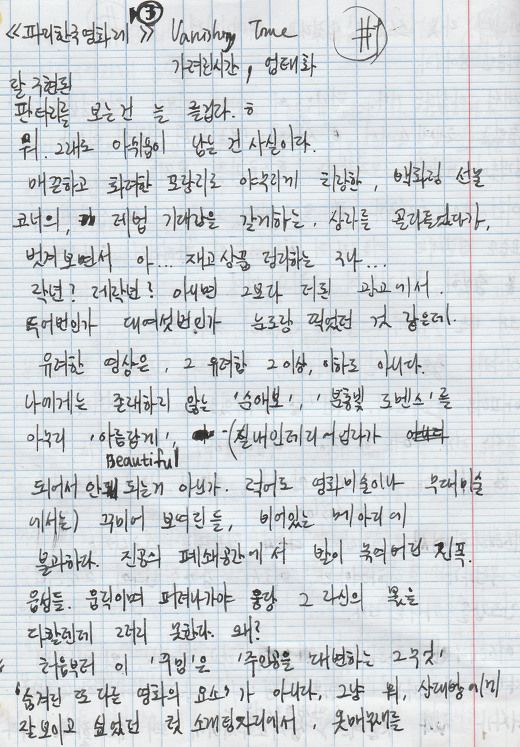 ≪파리한국영화제≫ ③ Vanishing Time #1
가려린시간, 엄태화
잘 구현된
판타지를 보는건 늘 즐겁다. ㅎ
뭐. 그래도 아쉬움이 남는 건 사실이다.
매끈하고 화려한 포장지로 야무지게 치장한, 백화점 선물
코너의, 제법 기대감을 갖게하는, 상자를 골라들었다가,
벗겨보면서 아... 재고상품 정리하는 구나...
작년? 재작년? 아니면 그보다 더른 광고에서.
두어번인가 대여섯번인가 눈도장 찍었던 것 같은데.
유려한 영상은, 그 유려함 그 이상, 이하도 아니다.
나에게는 존재하지 않는 '순애보', '분홍빛 로맨스'를
아무리 '아름답게', (실내인테리어업자가
Beautiful
되어서 안 되는거 아닌가. 적어도 영화미술이나 무대미술
에서는) 꾸미어 보여진들, 비어있는 메아리에
불과하다. 진공의 폐쇄공간에서 발이 묶여버린 진폭.
음성들. 움직이며 퍼져나가야 응당 그 자신의 몫을
다할텐데 그러지 못한다. 왜?
처음부터 이 '꾸밈'은 '주인공을 대변하는 그 무엇'
'숨겨진 또 다른 영화의 요소'가 아니다. 그냥 뭐, 상대방에게
잘 보이고 싶었던 첫 소개팅자리에서 옷매무새를 ...